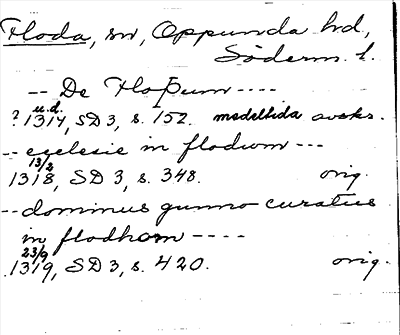 Floda, sn, Oppunda hd,
Söderm. l.
-- De Floþum ----
u.d.
? 1314, SD 3, s. 152. medeltida avskr.
-- ecclesie in flodum ---
13/2
1318, SD 3, s. 348. orig.
-- dominus gunno curatus
in flodhom ----
23/9
1319, SD 3, s. 420. orig.